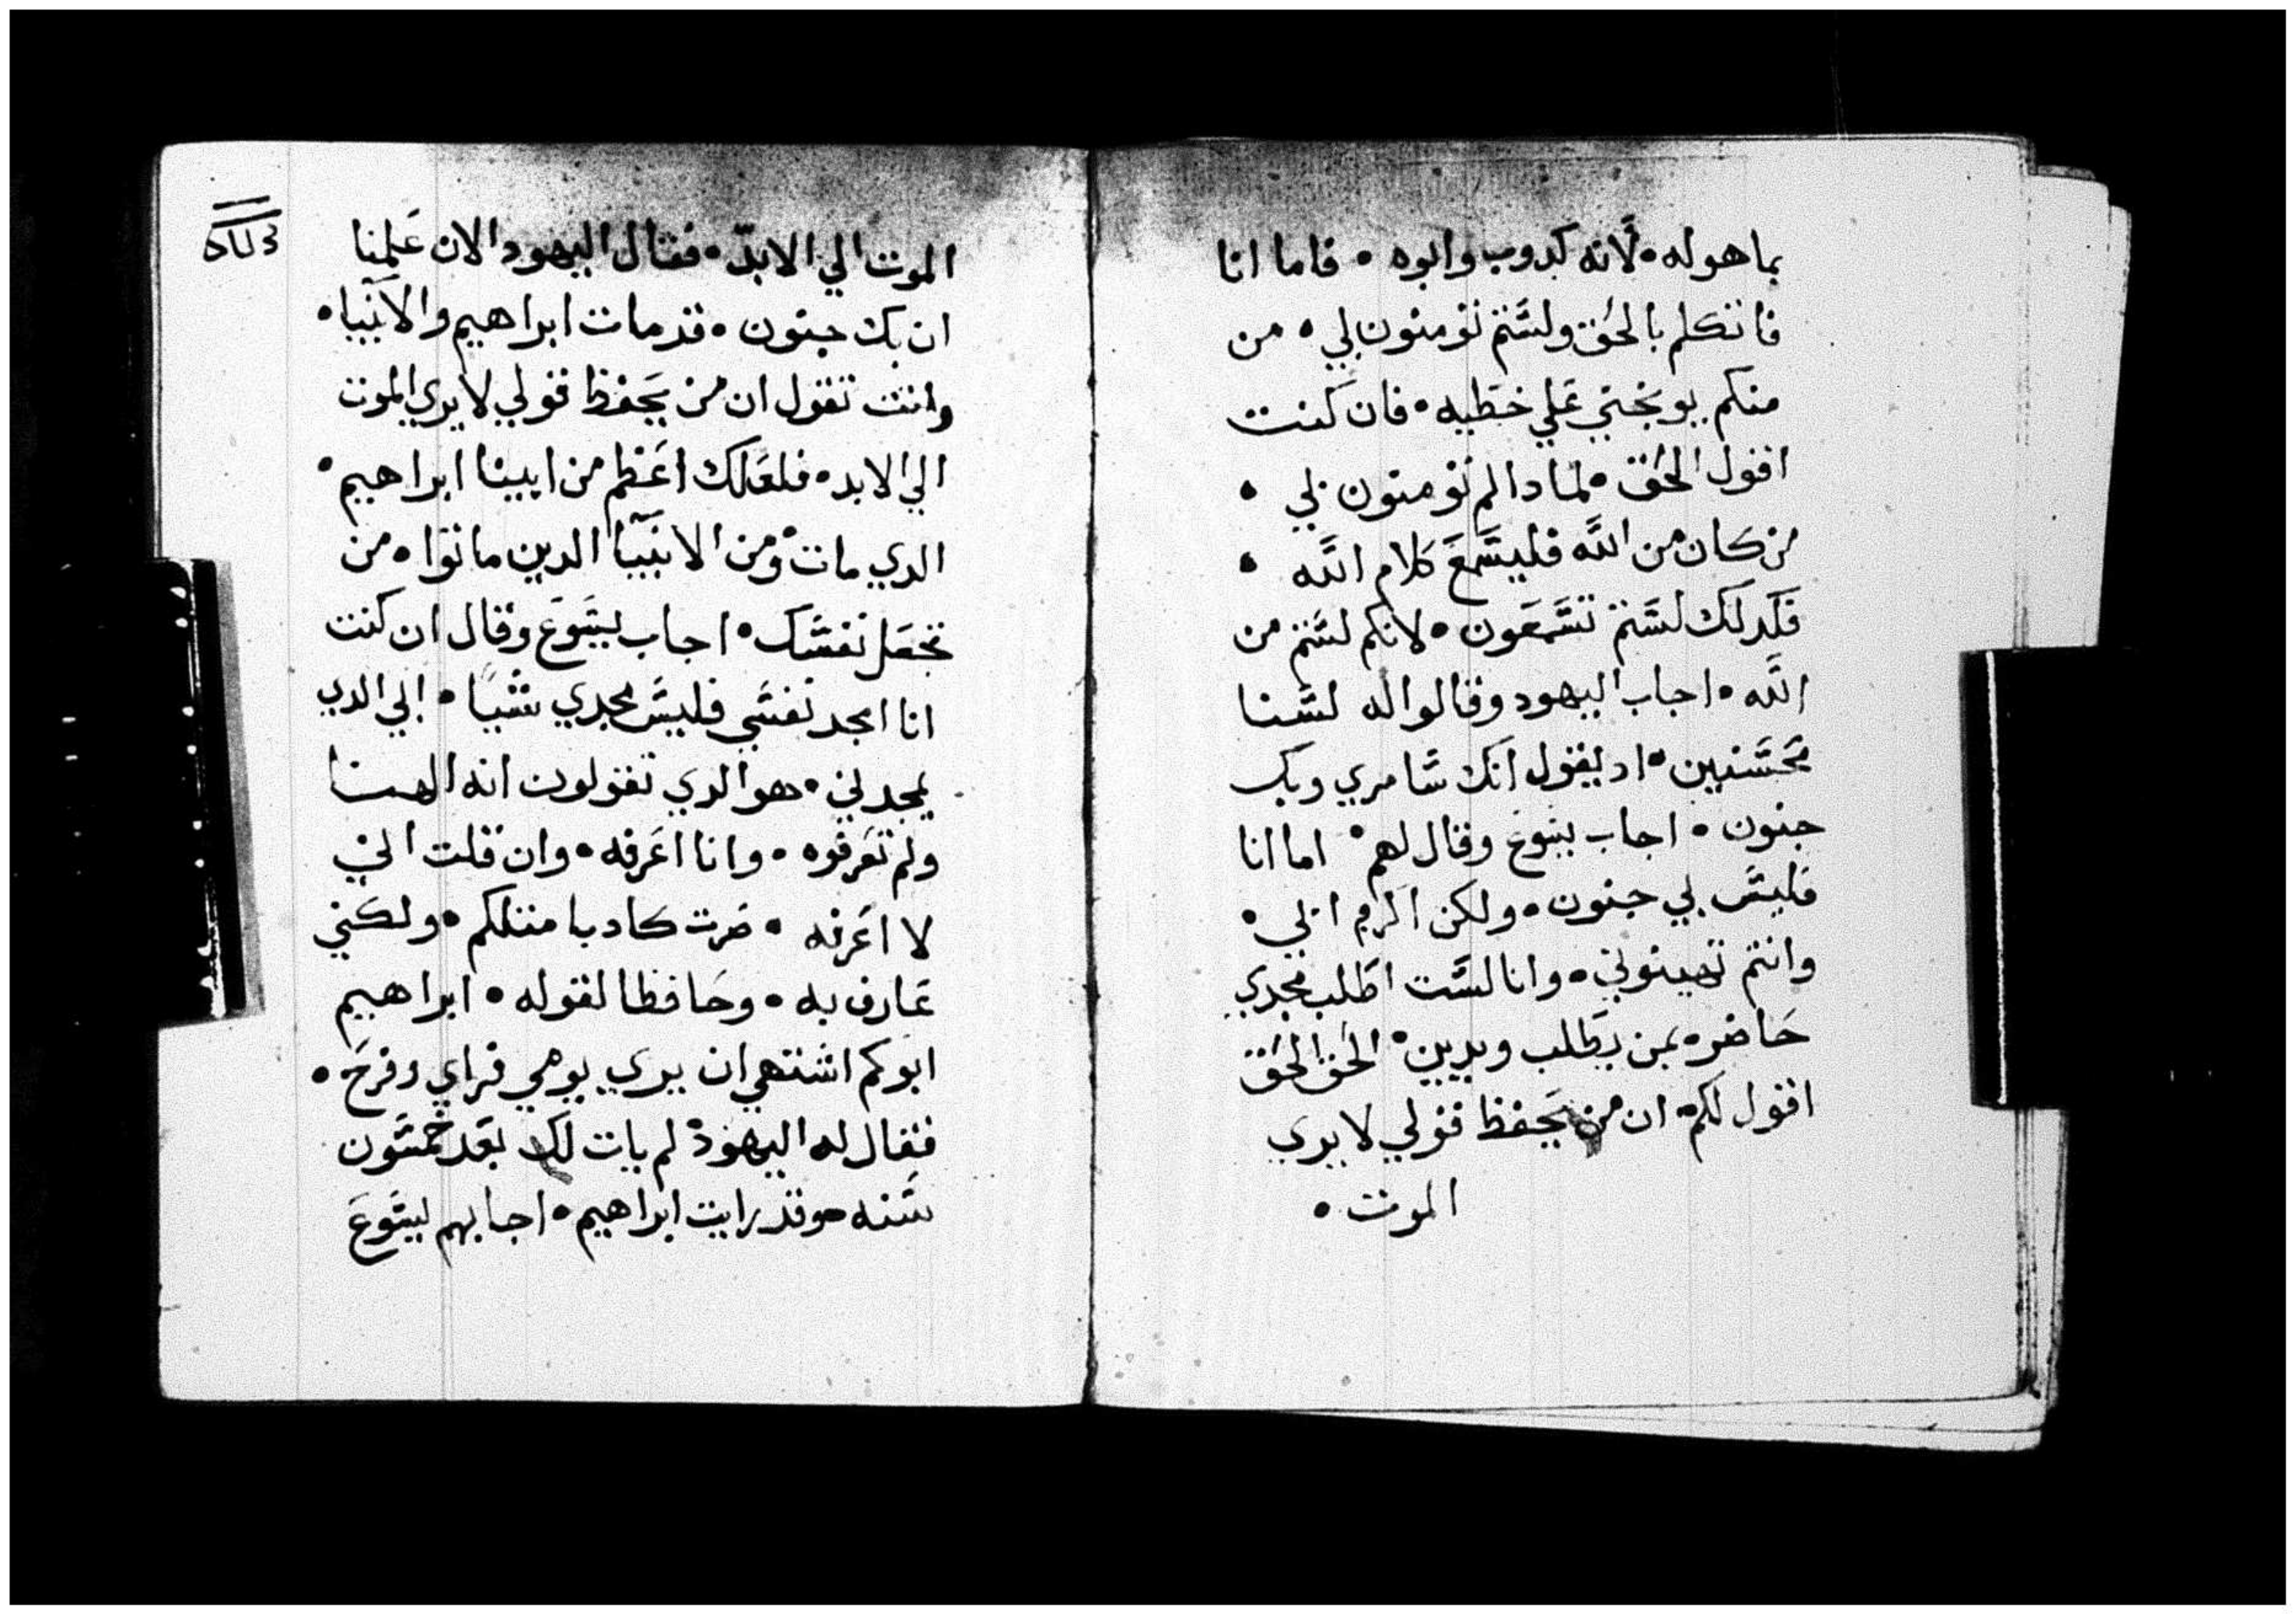 بما هوله • لانه كدوب وابوه • فاما انا
فاتكلم بالحق ولستم تومنون بي • من
منكم يوبخني علي خطيه • فان كنت
اقول الحق • لمادا لم تومنون بي •
من كان من الله فليسمع كلام الله •
فكدلك لستم تسمعون • لانكم لستم من
الله • اجاب اليهود وقالوا له لسنا
محسنين • اد يقول انك سامري وبك
جنون • اجاب يسوع وقال لهم • اما انا
فليس بي جنون • ولكن اكرم ابي •
وانتم تهينوني • وانا لست اطلب مجدي
حاضره بمن يطلب ويدين • الحق الحق
اقول لكم • ان من يحفظ قولي لا يري
الموت •
الموت الي الابد • فقال اليهود الان علمنا
ان بك جنون • قد مات ابراهيم والانبيا •
وانت تقول ان من يحفظ قولي لا يري الموت
الي الابد • فلعلك اعظم من ابينا ابراهيم •
الدي مات • ومن الانبيا الدين ماتوا • من
تجعل نفسك • اجاب يسوع وقال ان كنت
انا امجد نفسي فليس مجدي شيا • ابي الدي
يمجدني • هو الدي تقولون انه الهنا
ولم تعرفوه • وانا اعرفه • وان قلت اني
لا اعرفه • صرت كادبا متلكم • ولكني
عارف به • وحافظا لقوله • ابراهيم
ابوكم اشتهي ان يري يومي فراي وفرح •
فقال له اليهود • لم يات لك بعد خمسون
سنه وقد رايت ابراهيم • اجابهم يسوع